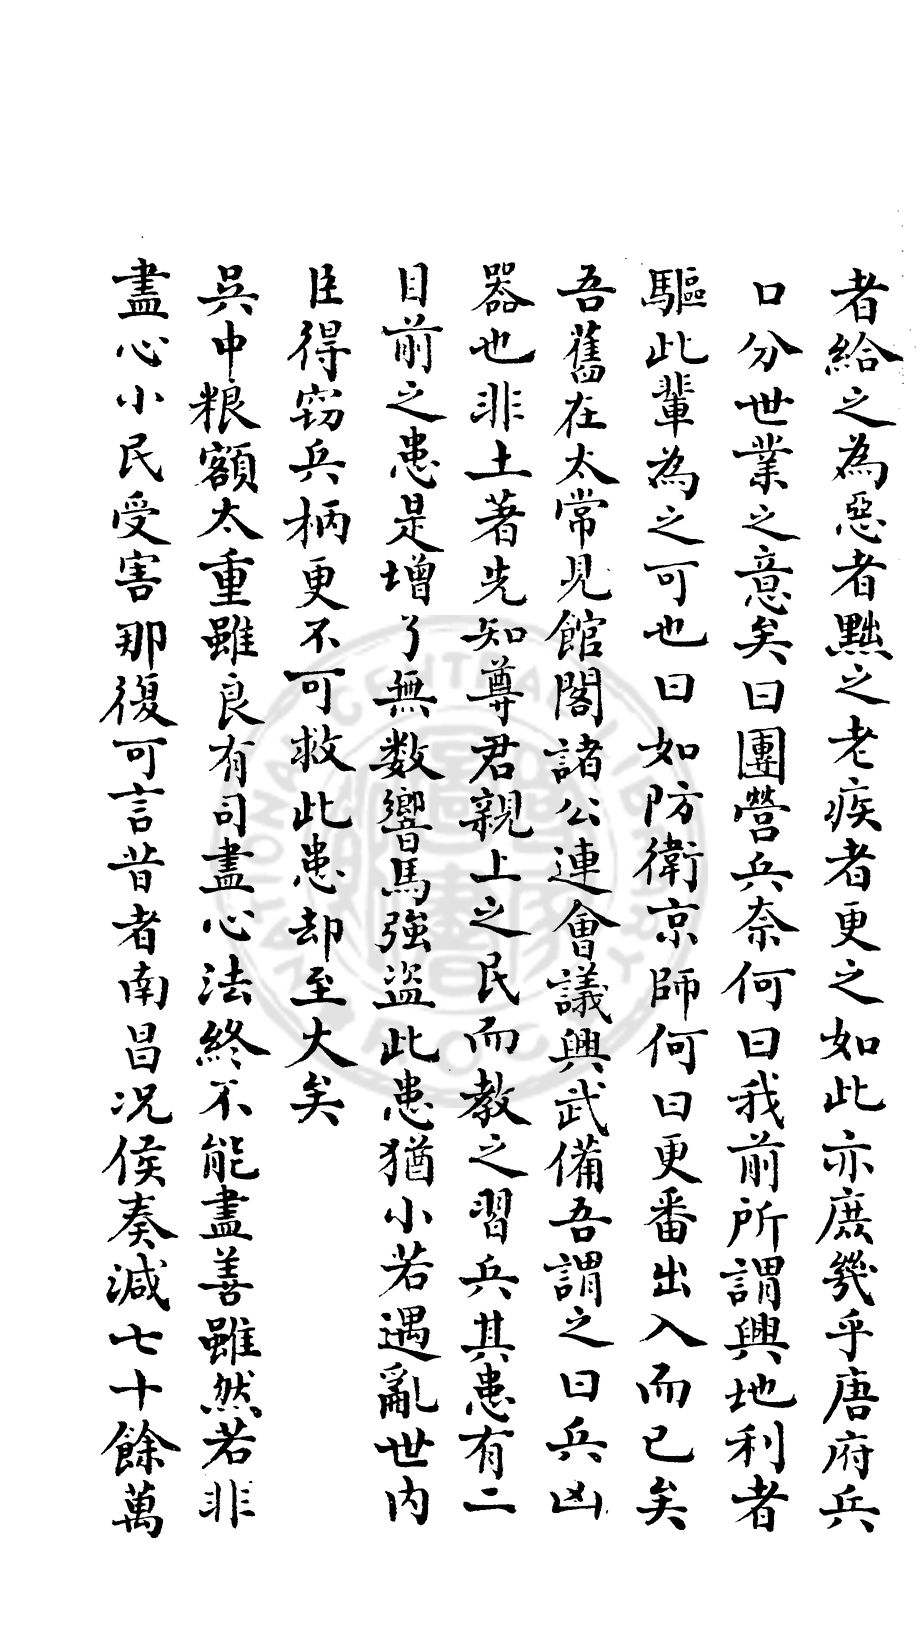 者給之為惡者黜之老疾者更之如此亦庶幾乎唐府兵
口分世業之意矣曰團營兵奈何曰我前所謂興地利者
驅此輩為之可也曰如防衛京師何曰更番出入而已矣
吾舊在太常見館閣諸公連會議興武備吾謂之曰兵凶
器也非土著先知尊君親上之民而教之習兵其患有二
目前之患是增了無数響馬強盜此患猶小若遇亂世内
臣得窃兵柄更不可救此患却至大矣
吳中粮額太重雖良有司盡心法終不能盡善雖然若非
盡心小民受害那復可言昔者南昌况侯奏減七十餘萬
NATIONAL CENTRAL LIBRARY